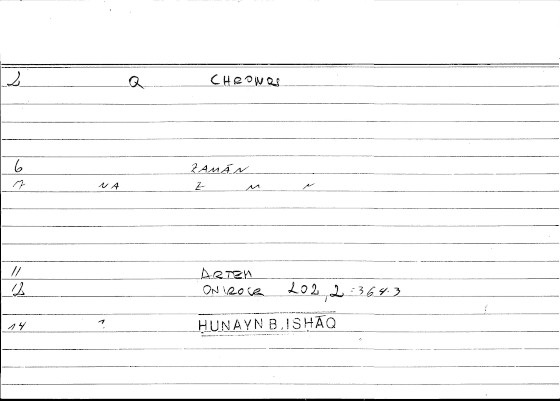 2 Q CHRONOS
6 ZAMĀN
7 NA Z M N
11 ARTEM
12 ONIROCR 202,2:364.3
14 ? HUNAYN B. ISHĀQ